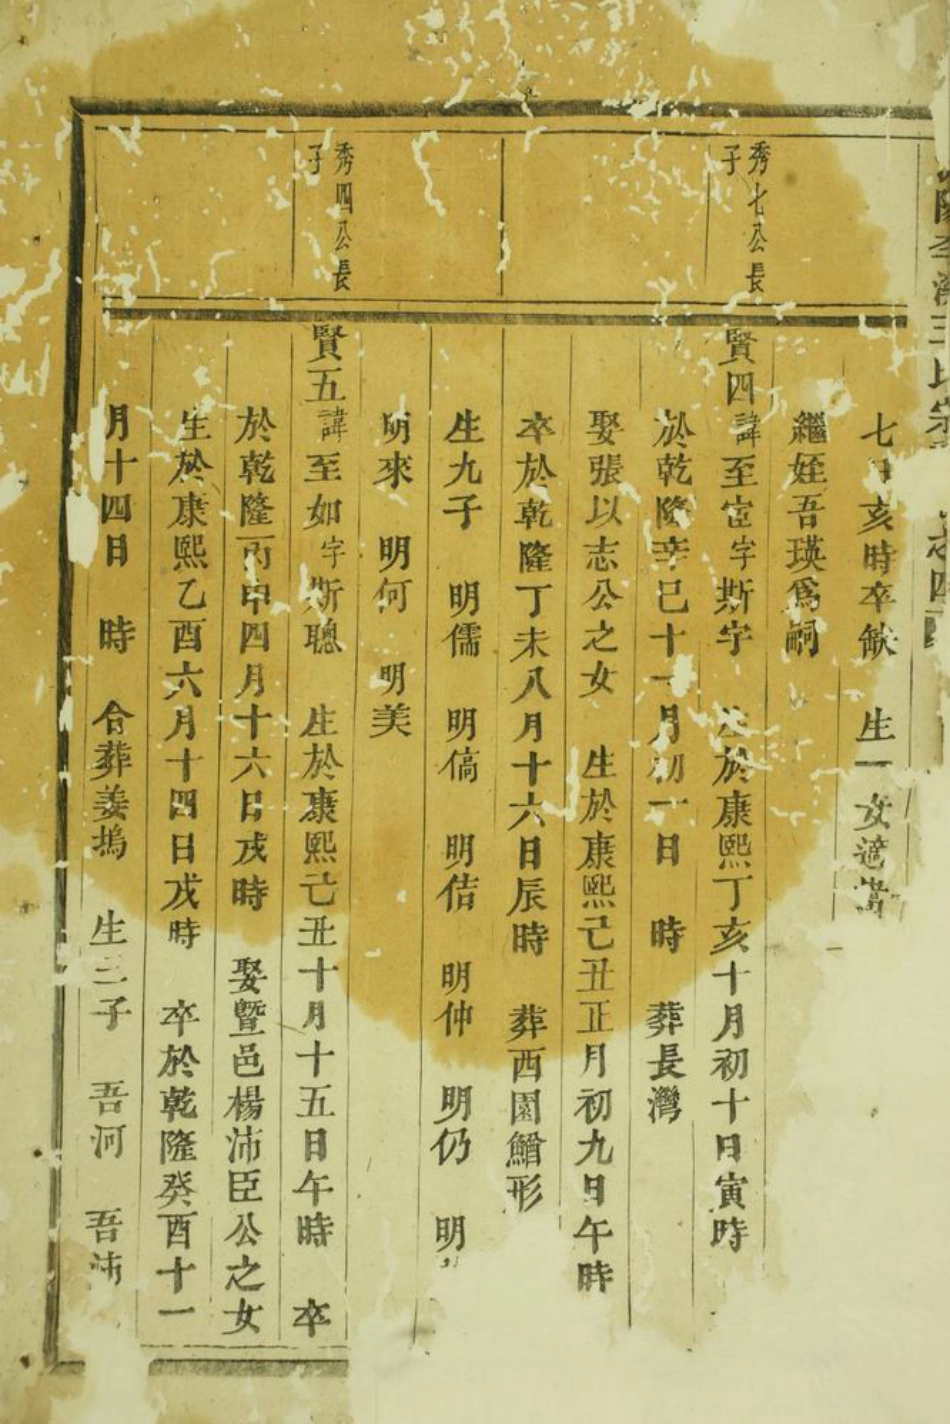 陽李
王氏宗
四
七日亥時卒缺　生一女適
繼姪吾瑛為嗣
秀七公長
子
賢四諱至宦字斯宇　生於康熙丁亥十月初十日寅時
於乾隆辛巳十一月初一日　時　葬長灣
娶張以志公之女　生於康熙己丑正月初九日午時
卒於乾隆丁未八月十六日辰時　葬西園鰌形
生九子　明儒　明傐　明佶　明仲　明仍　明
明來　明何　明美
秀四公長
子
賢五諱至如字斯聰　生於康熙己丑十月十五日午時　卒
於乾隆丙申四月十六日戌時　娶暨邑楊沛臣公之女
生於康熙乙酉六月十四日戌時　卒於乾隆癸酉十一
月十四日　時　合葬姜塢　生三子　吾河　吾沛